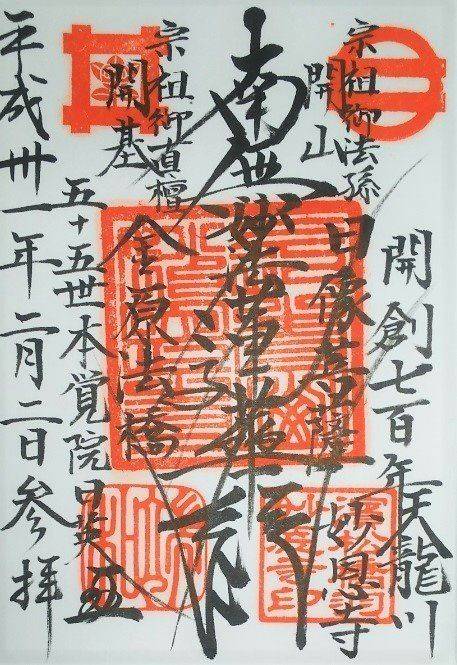 開創七百年 天龍川
妙恩寺
宗祖御法孫
開山 日像菩薩
南無妙法蓮華経
宗祖御直檀
開基 金原法橋
五十五世本覚院日英
平成卅一年二月二日参拝